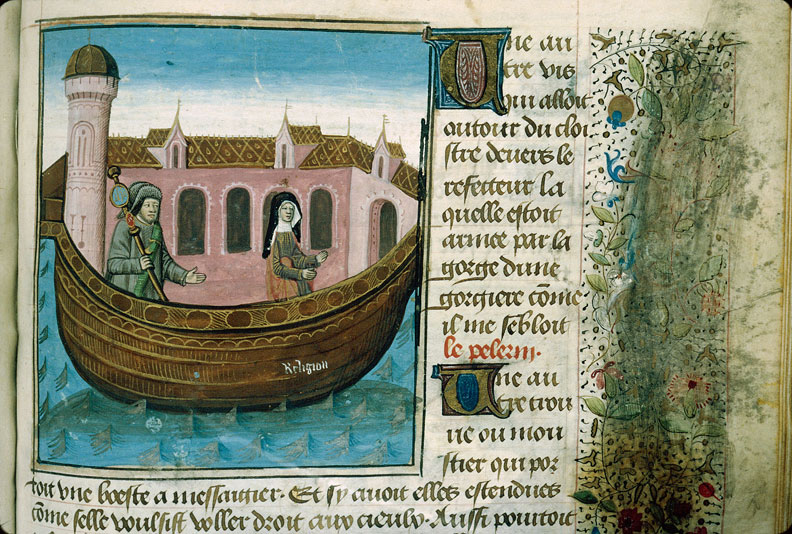 Religion
Une au
tre vis
qui alloit
autour du cloi
stre deuers le
refecteur la
quelle estoit
armee par la
gorge dune
gorgiere cōme
il me sēbloit
le pelerin.
Une au
tre trou
ue ou mou
stier qui por
toit vne boeste a messaigier. Et sy auoit elles estendues
cōme selle voulsist voller droit aux cieulx. Aussi portoit